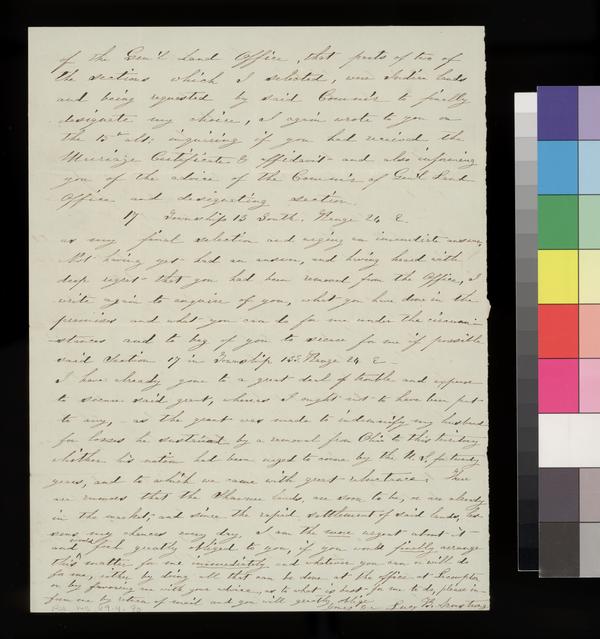 of the Gen'l Land Office, that parts of two of
the sections which I selected, were Indian lands
and being requested by said Commis'r to finally
designate my choice, I again wrote to you on
the 15th ult: inquiring if you had received the
Marriage Certificate & affidavit and also informing
you of the advice of the Commis'r of Gen'l Land
Office and designating section
17 Township 13 South. Range 24 E.
as my final selection and urging an immediate answer,
Not having yet had an answer, and having heard with
deep regret that you had been removed from the Office, I
write again to enquire of you, what you have done in the
premises and what you can do for me under the circum-
stances and to beg of you to secure for me if possible
said Section 17 in Township 13S. Range 24 E.
I have already gone to a great deal of trouble and expense
to secure said grant, whereas I ought not to have been put
to any, as the grant was made to indemnify my husband
for losses he sustained by a removal from Ohio to this territory
whither his nation had been urged to come by the U.S. for twenty
years, and to which we came with great reluctance. There
are rumors that the Shawnee lands, are soon to be, or are already
in the market, and since the rapid settlement of said lands, les-
sens my chances every day, I am the more urgent about it
and would feel greatly obliged to you, if you would finally arrange
this matter for me immediately and whatever you can or will do
for me, either by doing all that can be done at the office at Lecompton
or by favoring me with your advice, as to what is best for me to do, please in-
form me by return of mail and you will greatly oblige
Yours &c Lucy B. Armstrong